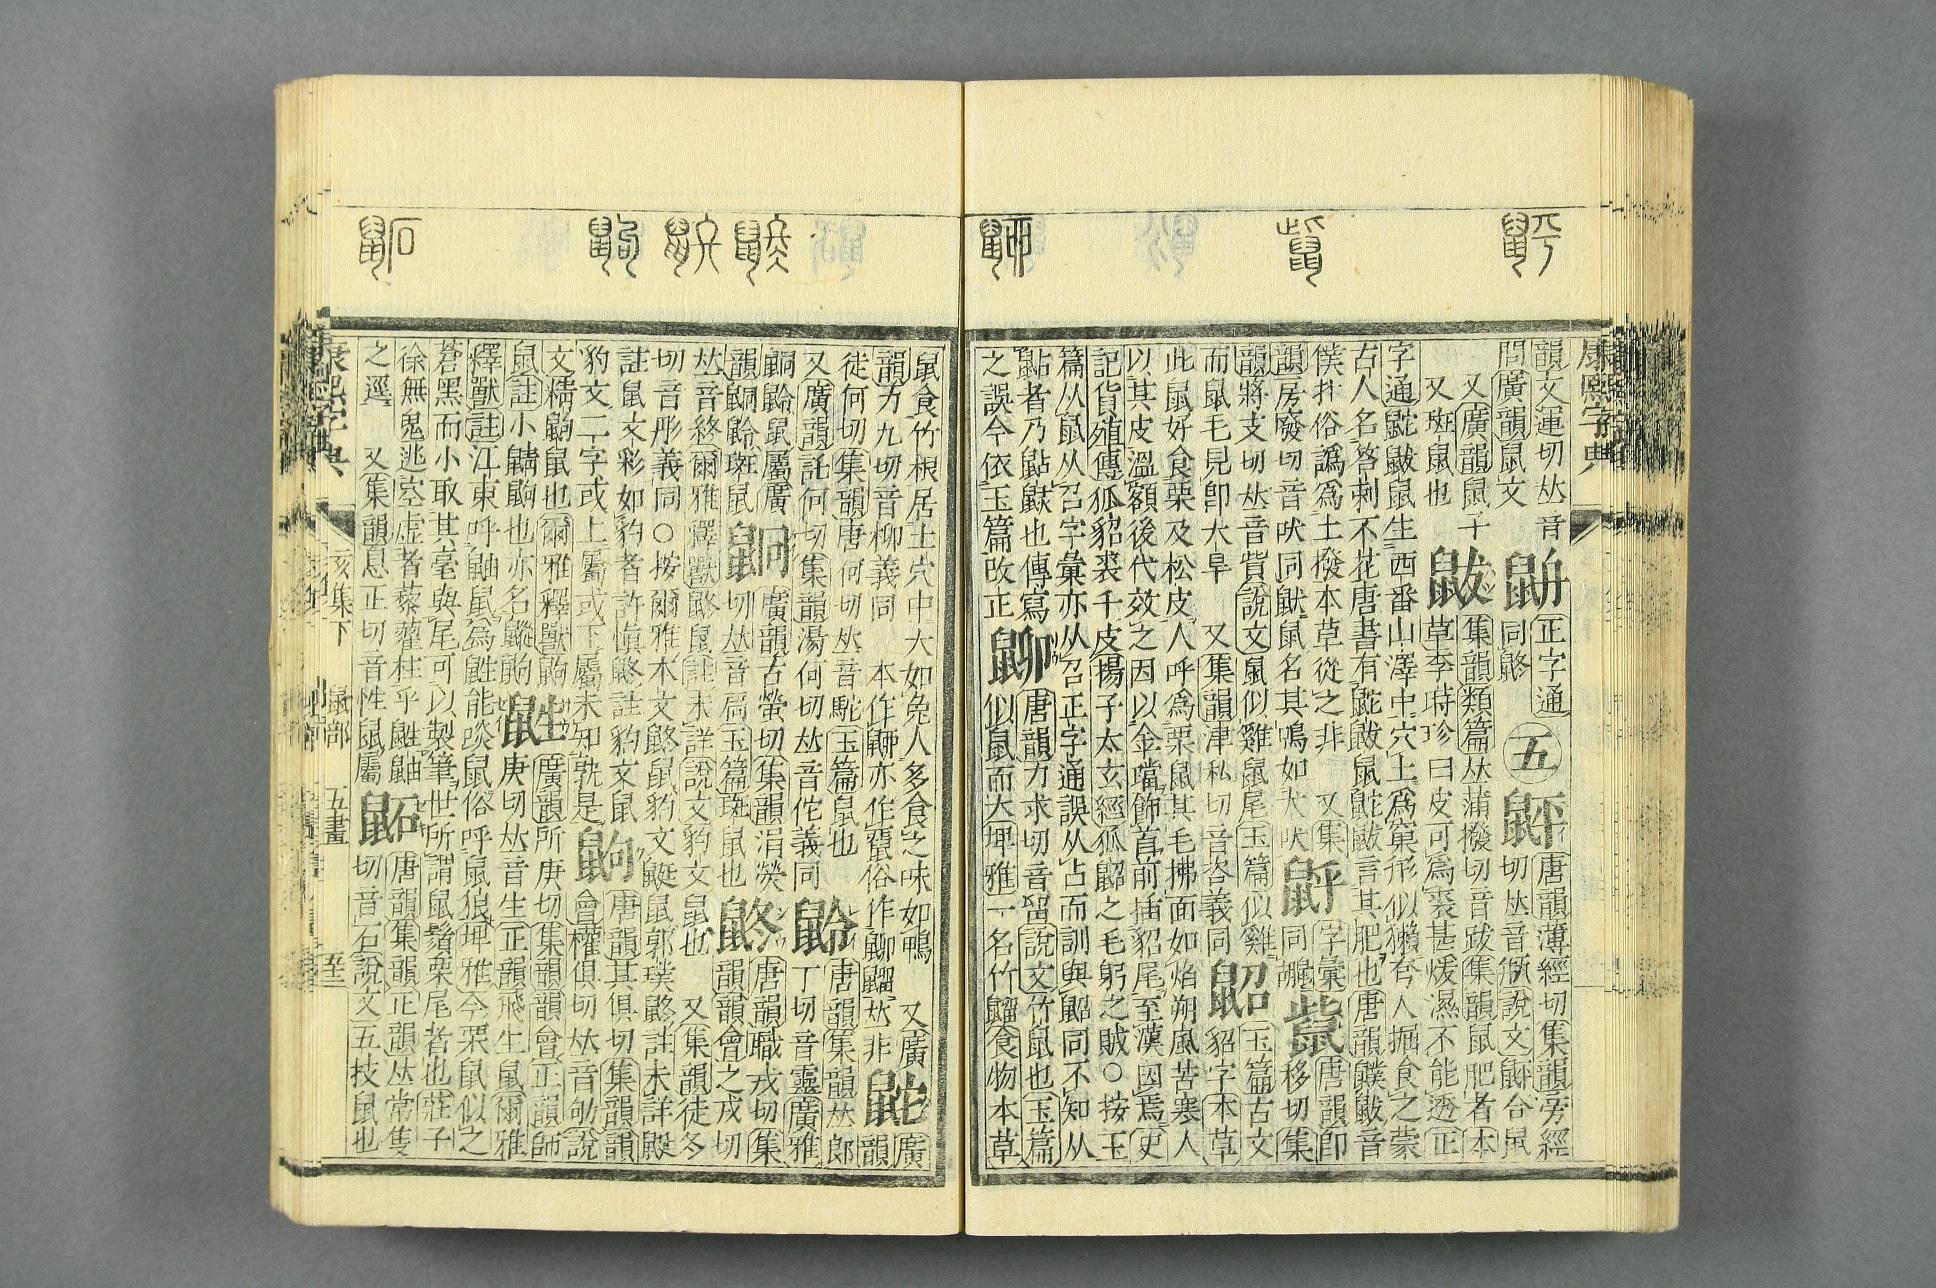 康熙字典
韻文運切𠀤音 正字通 五 䶄 唐韻薄經切集韻旁經
問廣韻鼠文 同鼨 切𠀤音缾說文䶄令鼠
又廣韻鼠子 鼥 集韻類篇𠀤蒲撥切音跋集韻鼠肥者本
又斑鼠也 草李時珍曰皮可爲裘甚煖濕不能透正
字通鼧鼥鼠生西番山澤中穴土爲窠形似獺夸人掘食之蒙
古人名荅剌不花唐書有鼧鼥鼠鼧鼥言其肥也唐韻鼥音
僕朴俗譌爲土撥本草從之非 又集 字彙 唐韻卽
韻房廢切音吠同鼣鼠名其鳴如犬吠 同 移切集
韻將支切𠀤音貲說文鼠似雞鼠尾玉篇似雞 鼦 玉篇古文
而鼠毛見卽大旱 又集韻津私切音咨義同 貂字本草
此鼠好食栗及松皮人呼爲栗鼠其毛拂面如焰朔風苦寒人
以其皮溫額後代效之因以金璫飾首前插貂尾至漢因焉史
記貨殖傳狐貂裘千皮揚子太玄經狐鼦之毛躬之賊○按玉
篇从鼠从召字彙亦从召正字通誤从占而訓與鼦同不知从
者乃鼣也傳寫 唐韻力求切音畱說文竹鼠也玉篇
之誤今依玉篇改正 似鼠而大埤雅一名竹䶉食物本草
鼠食竹根居土穴中大如兔人多食之味如鴨 又廣 鼧 廣
韻力九切音柳義同 本作亦作俗作𠀤非 韻
徒何切集韻唐何切𠀤音駝玉篇鼠也 唐韻集韻𠀤郎
又廣韻託何切集韻湯何切𠀤音佗義同 丁切音靈廣雅
鼠屬廣 廣韻古螢切集韻涓熒 鼨 唐韻職戎切集
韻斑鼠 切𠀤音扃玉篇斑鼠也 韻韻會之戎切
𠀤音終爾雅釋獸鼨鼠註未詳說文豹文鼠也 又集韻徒冬
切音彤義同○按爾雅本文鼨鼠豹文鼮鼠郭璞鼨註未詳鼮
註鼠文彩如豹者許愼鼨註豹文鼠 鼩 唐韻其俱切集韻韻
豹文二字或上屬或下屬未知孰是 會權俱切𠀤音劬說
文精鼩鼠也爾雅釋獸鼩 鼪 廣韻所庚切集韻韻會正韻師
鼠註小鼱鼩也亦名鼩 庚切𠀤音生正韻飛生鼠爾雅
釋獸註江東呼鼬鼠爲鼪能啖鼠俗呼鼠狼埤雅今栗鼠似之
蒼黑而小取其毫與尾可以製筆世所謂鼠鬚栗尾者也莊子
徐無鬼逃空虛者藜藋柱乎鼪鼬 鼫 唐韻集韻正韻𠀤常隻
之逕 又集韻息正切音性鼠屬 切音石說文五技鼠也
康熙字典 亥集下 鼠部 五畫 至